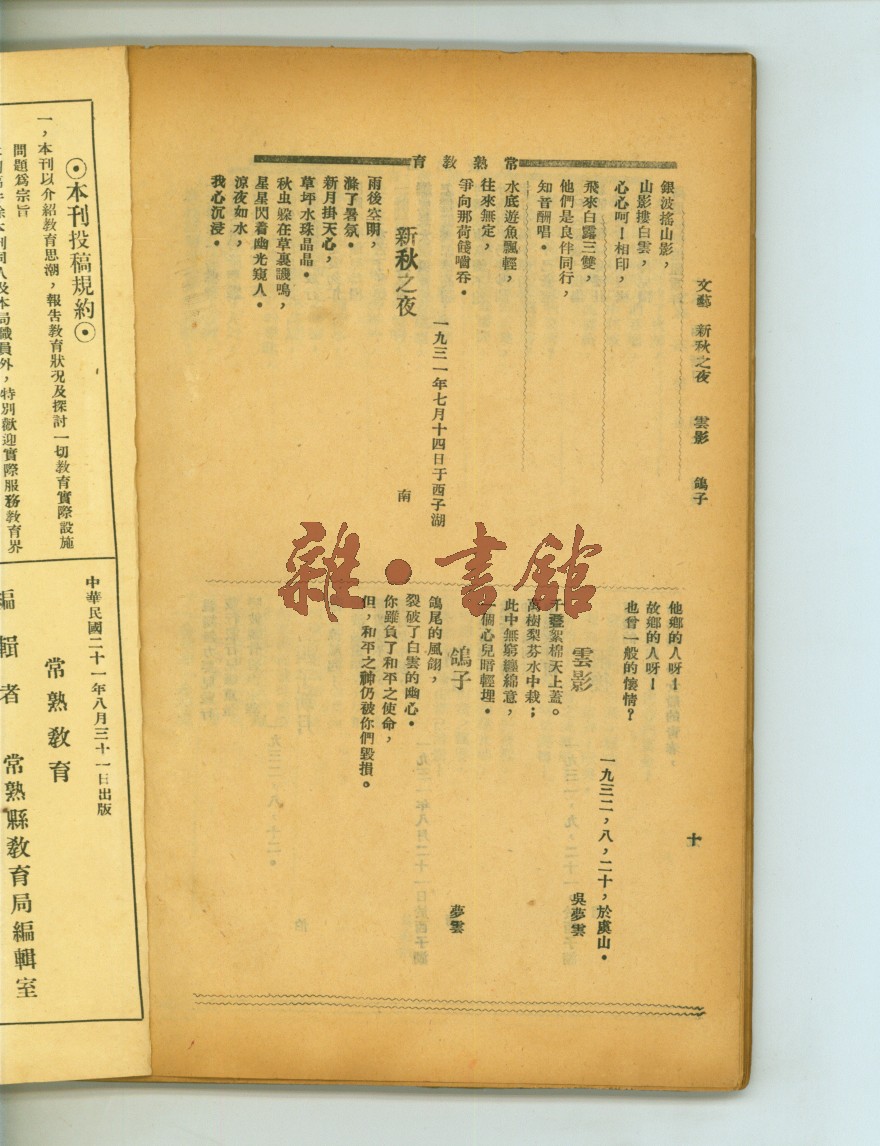 常熟教育
文藝　新秋之夜　雲影　鴿子
十
銀波搖山影，
山影摟白雲，
心心呵！相印，
飛來白露三雙，
他們是良伴同行，
知音酬唱。
水底遊魚飄輕，
往來無定，
爭向那荷錢嚼吞。
一九三一年七月十四日于西子湖
新秋之夜
南
雨後空明，
滌了暑氛。
新月掛天心，
草坪水珠晶晶。
秋虫躲在草裏譏鳴，
星星閃着幽光窺人。
涼夜如水，
我心沉浸。
他鄉的人呀！
故鄉的人呀！
也曾一般的懷情？
一九三二，八，二十，於虞山。
雲影
吳夢雲
千疊絮棉天上蓋。
萬樹梨芬水中栽；
此中無窮纏綿意，
一個心兒暗輕埋。
鴿子
夢雲
鴿尾的風翎，
裂破了白雲的幽心。
你雖負了和平之使命，
但，和平之神仍被你們毀損。
雜·書館
⊙本刊投稿規約⊙
一，本刊以介紹教育思潮，報告教育狀况及探討一切教育實際設施
問題爲宗旨
本刊同人及本局職員外，特別歡迎實際服務教育界
中華民國二十一年八月三十一日出版
常熟教育
編輯者　常熟縣教育局編輯室